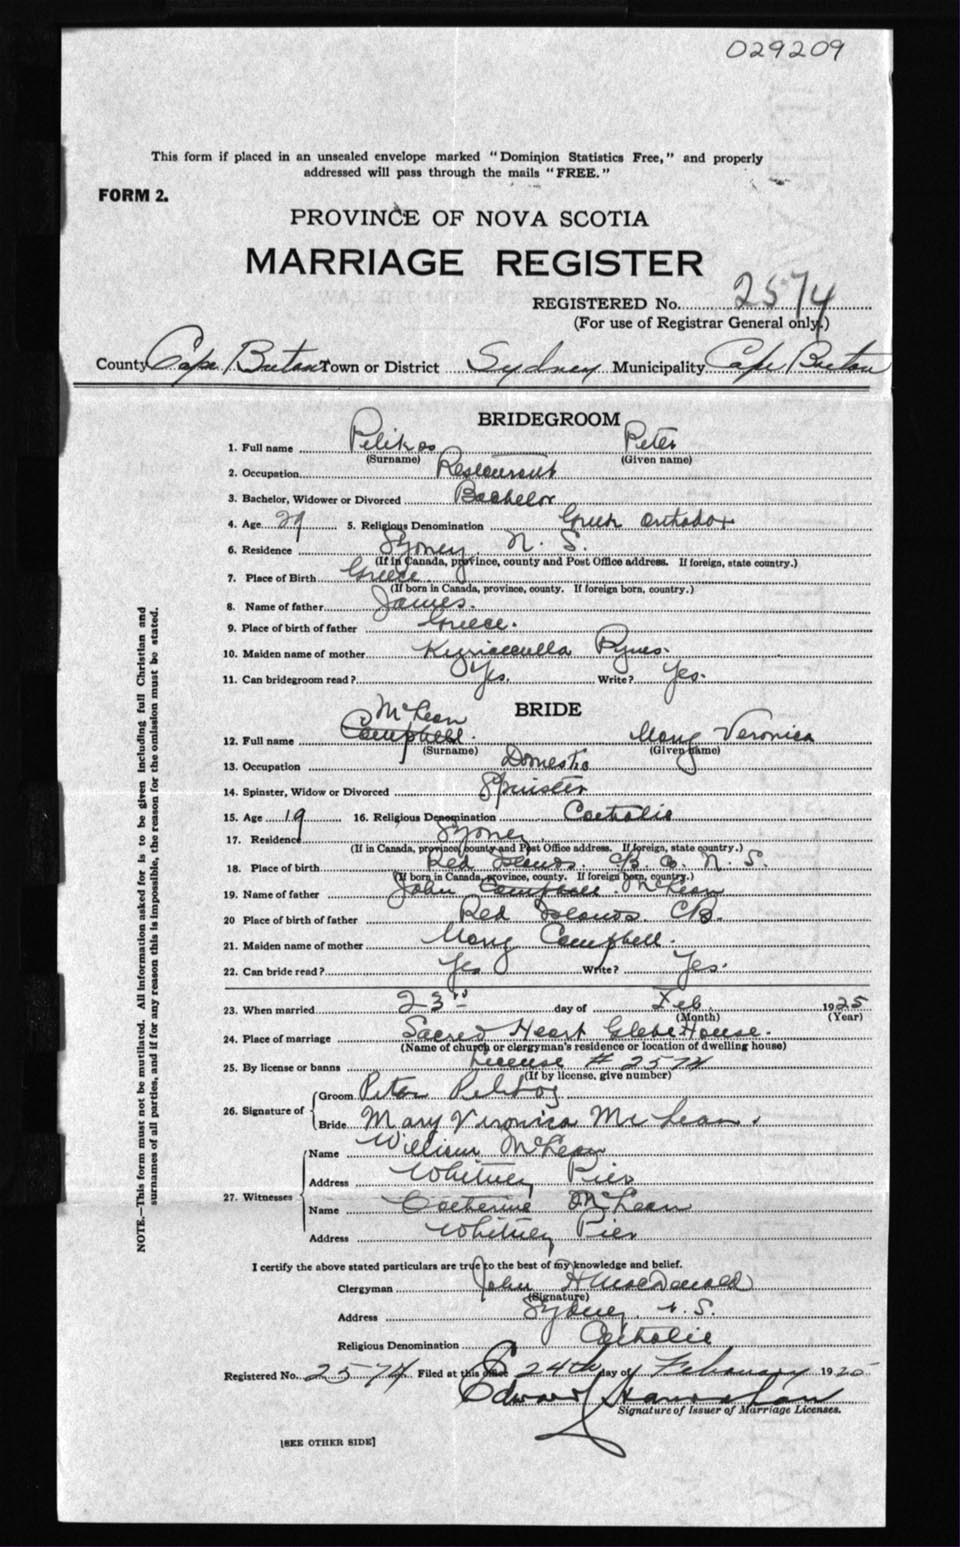 029209
This form if placed in an unsealed envelope marked "Dominion Statistics Free," and properly
addressed will pass through the mails "FREE."
FORM 2.
PROVINCE OF NOVA SCOTIA
MARRIAGE REGISTER
REGISTERED No. 2574
(For use of Registrar General only.)
County Cape Breton Town or District Sydney Municipality Cape Breton
BRIDEGROOM
1. Full name Pelikos Peter
(Surname) (Given name)
2. Occupation Restaurant
3. Bachelor, Widower or Divorced Bachelor
4. Age 29 5. Religious Denomination Greek Orthodox
6. Residence Sydney N. S.
(If in Canada, province, county and Post Office address. If foreign, state country.)
7. Place of Birth Greece
(If born in Canada, province, county. If foreign born, country.)
8. Name of father James.
9. Place of birth of father Greece.
10. Maiden name of mother
11. Can bridegroom read? Yes. Write? Yes.
BRIDE
McLean
12. Full name Campbell. Mary Veronica
(Surname) (Given name)
13. Occupation Domestic
14. Spinster, Widow or Divorced Spinster
15. Age 19 16. Religious Denomination Catholic
17. Residence Sydney
(If in Canada, province, county and Post Office address. If foreign, state country.)
18. Place of birth Red Islands. C.B. Co. N. S.
(If born in Canada, province, county. If foreign born, country.)
19. Name of father John Campbell McLean
20 Place of birth of father Red Islands. CB.
21. Maiden name of mother Mary Campbell.
22. Can bride read? Yes Write? Yes.
23. When married 23rd day of Feb 1925
(Month) (Year)
24. Place of marriage Sacred Heart Glebe House.
(Name of church or clergyman's residence or location of dwelling house)
25. By license or banns License # 2574
(If by license, give number)
26. Signature of
Groom Peter
Bride Mary Veronica McLean.
27. Witnesses
Name William McLean
Address Whitney Pier
Name Catherine McLean
Address Whitney Pier
I certify the above stated particulars are true to the best of my knowledge and belief.
Clergyman John H MacDonald
(Signature)
Address Sydney N. S.
Religious Denomination Catholic
Registered No. 2574 Filed at this office 24th day of February 1925
Edward Hanrahan
Signature of Issuer of Marriage Licenses.
[SEE OTHER SIDE]
NOTE.—This form must not be mutilated. All information asked for is to be given including full Christian and
surnames of all parties, and if for any reason this is impossible, the reason for the omission must be stated.